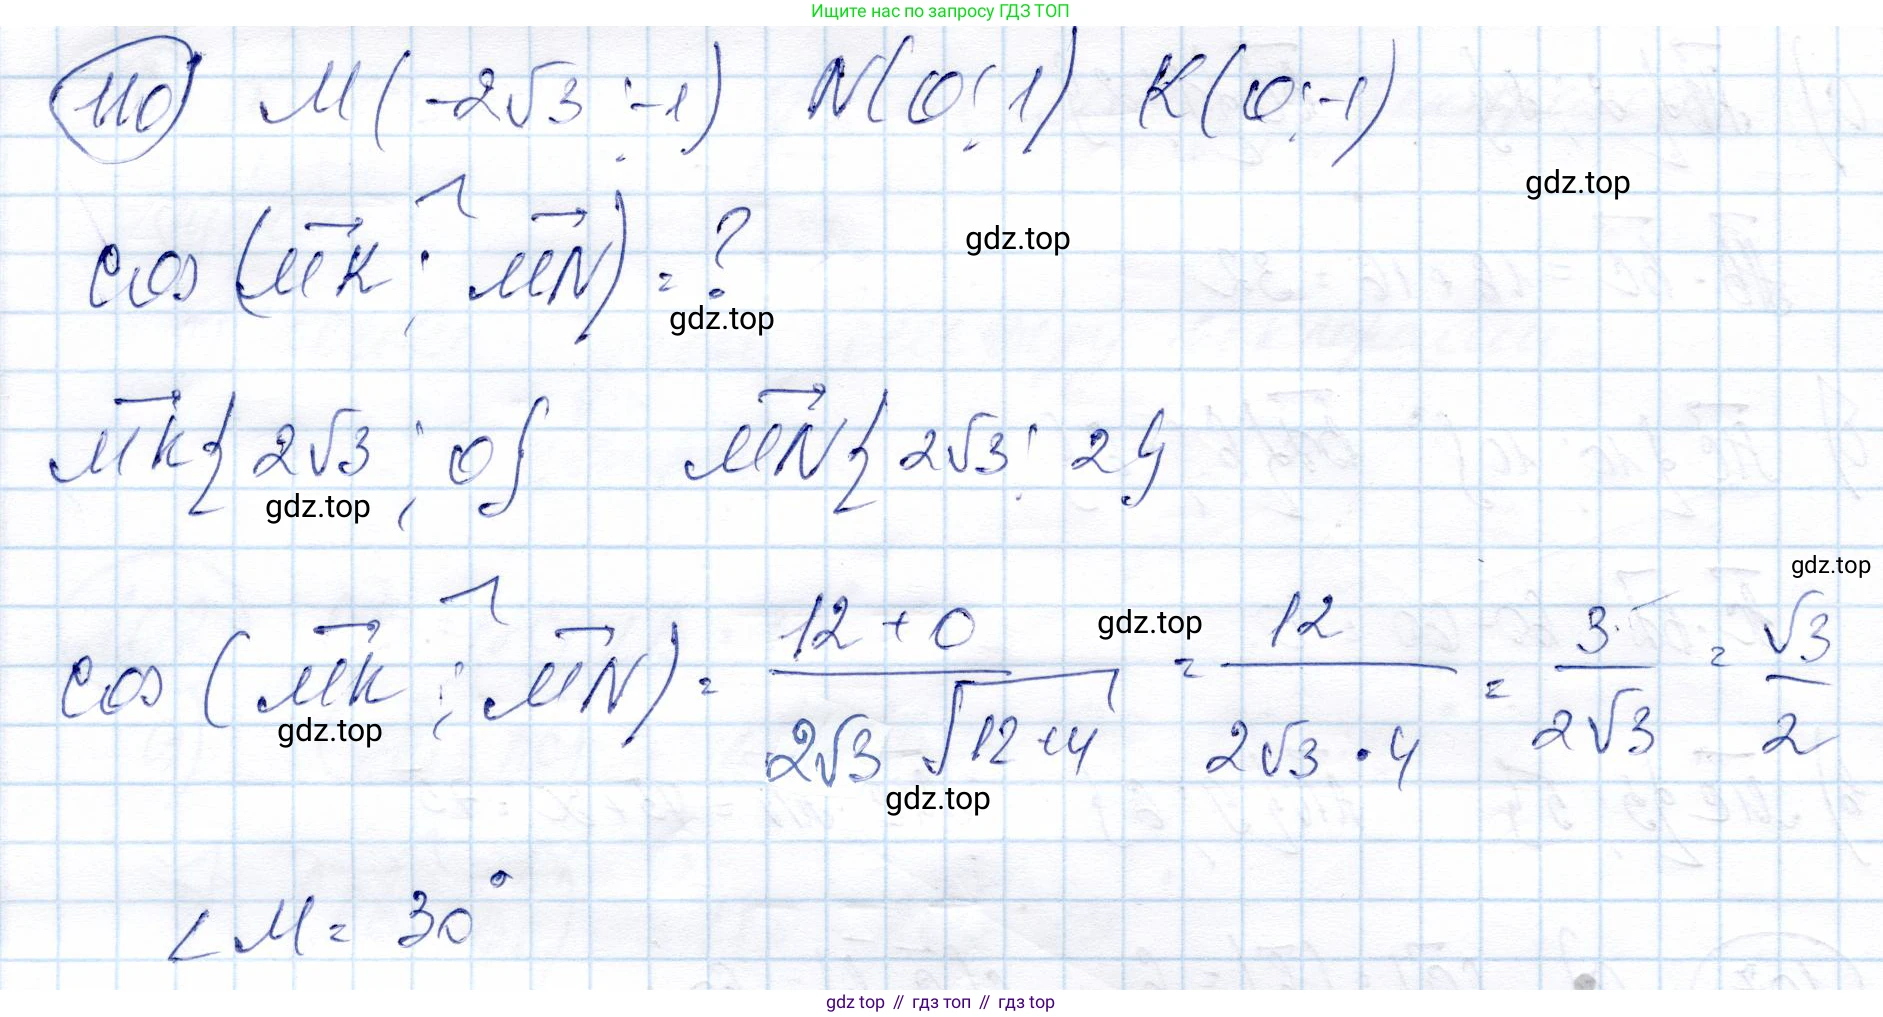 Ищите нас по запросу ГДЗ ТОП
110 M(-2√3; -1) N(0; 1) K(0; -1)
gdz.top
cos(MK; ^ MN) = ?
gdz.top
gdz.top
MK{2√3; 0} MN{2√3; 2}
gdz.top
gdz.top
cos(MK; ^ MN) = (12 + 0)/(2√3 √(12+4)) = 12/(2√3 · 4) = 3/(2√3) = √3/2
gdz.top
gdz.top
gdz.top
∠M = 30°
gdz top // гдз топ // гдз top